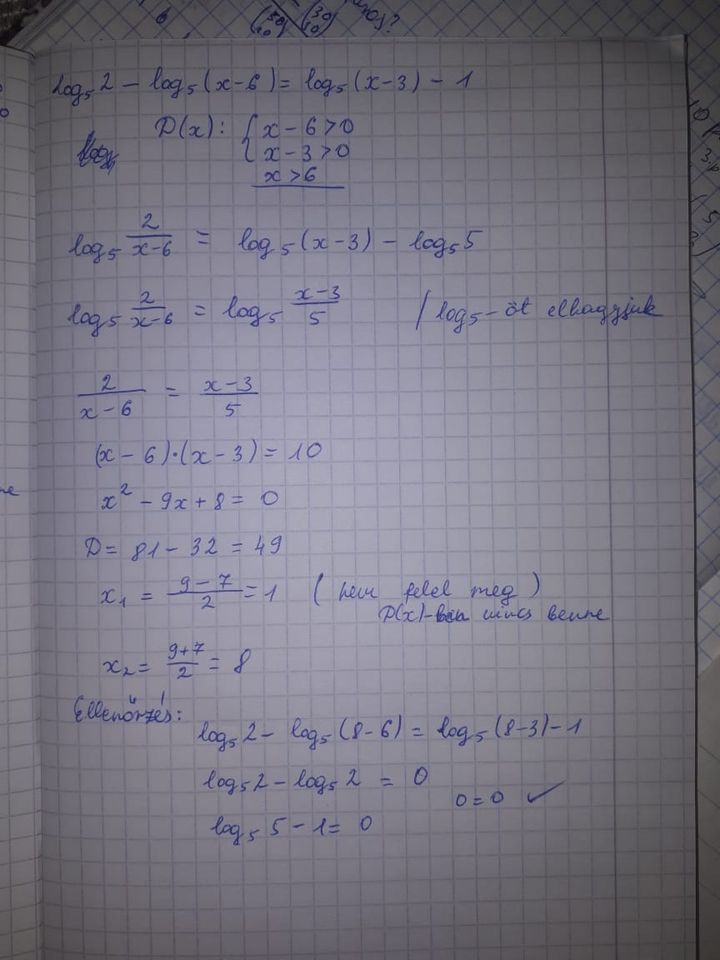 log₅2 − log₅(x−6) = log₅(x−3) − 1
D(x): { x − 6 > 0
x − 3 > 0
x > 6
log₅ 2/(x−6) = log₅(x−3) − log₅5
log₅ 2/(x−6) = log₅ (x−3)/5 / log₅-öt elhagyjuk
2/(x−6) = (x−3)/5
(x − 6)·(x − 3) = 10
x² − 9x + 8 = 0
D = 81 − 32 = 49
x₁ = (9−7)/2 = 1 (nem felel meg)
D(x)-ben nincs benne
x₂ = (9+7)/2 = 8
Ellenőrzés:
log₅2 − log₅(8−6) = log₅(8−3) − 1
log₅2 − log₅2 = 0
0 = 0 ✓
log₅5 − 1 = 0